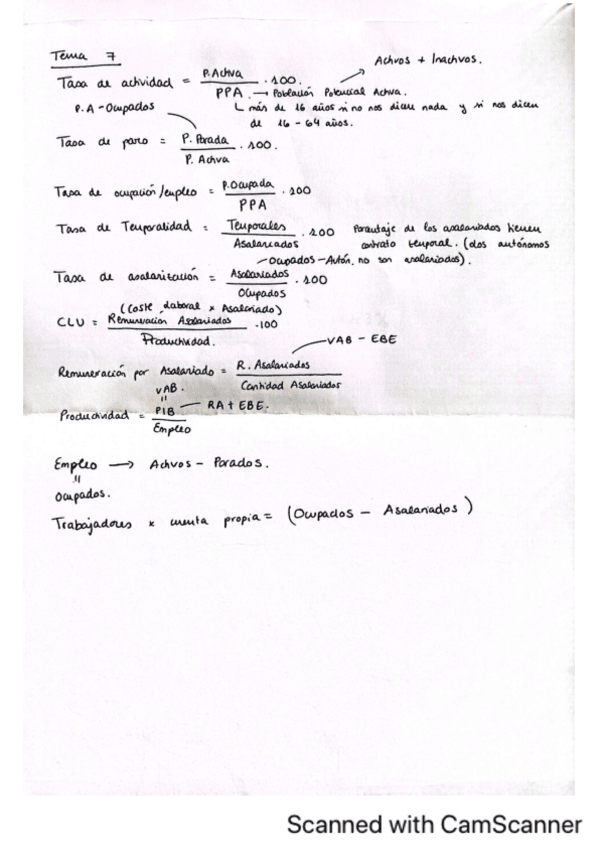 Tema 7
Activos + Inactivos.
Tasa de actividad = P.Activa / PPA · 100.
PPA → Población Potencial Activa.
más de 16 años si no nos dicen nada y si nos dicen
de 16 - 64 años.
P.A - Ocupados
Tasa de paro = P. Parada / P. Activa · 100.
Tasa de ocupación/empleo = P.Ocupada / PPA · 100
Tasa de Temporalidad = Temporales / Asalariados · 100 Porcentaje de los asalariados tienen
contrato temporal. (los autónomos
no son asalariados).
Ocupados - Autón.
Tasa de asalarización = Asalariados / Ocupados · 100
(Coste Laboral x Asalariado)
CLU = Remuneración Asalariados / Productividad. · 100
VAB - EBE
Remuneración por Asalariado = R. Asalariados / Cantidad Asalariados
VAB.
=
Productividad = PIB / Empleo
RA + EBE.
Empleo → Activos - Parados.
=
Ocupados.
Trabajadores x cuenta propia = (Ocupados - Asalariados)
Scanned with CamScanner